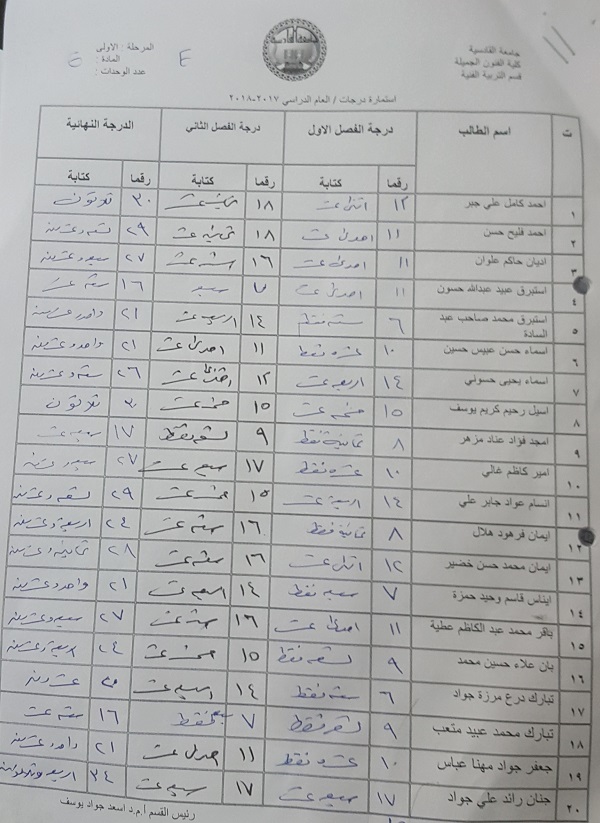 جامعة القادسية
كلية الفنون الجميلة
قسم التربية الفنية
المرحلة : الاولى
المادة :
عدد الوحدات :
استمارة درجات / العام الدراسي ٢٠١٧-٢٠١٨
ت اسم الطالب درجة الفصل الاول درجة الفصل الثاني الدرجة النهائية
رقما كتابة رقما كتابة رقما كتابة
١ احمد كامل علي جبر ١٢ اثنى عشر ١٨ ٣٠ ثلاثون
٢ احمد فليح حسن ١١ احدى عشر ١٨ ثمانية عشر ٢٩ تسعة وعشرين
٣ اديان حاكم علوان ١١ احدى عشر ١٦ ستة عشر ٢٧ سبعة وعشرين
٤ استبرق عبيد عبدالله حسون ١١ احدى عشر ٧ ١٦ ستة عشر
٥ استبرق محمد صاحب عبد السادة ٦ ستة فقط ١٤ اربعة عشر ٢١ واحد وعشرين
٦ اسماء حسن عبيس حسين ١٠ عشرة فقط ١١ احدى عشر ٢١ واحد وعشرين
٧ اسماء يحيى حسوني ١٤ اربعة عشر ١٢ ٢٦ ستة وعشرين
٨ اسيل رحيم كريم يوسف ١٥ خمسة عشر ١٥ خمسة عشر ٣٠ ثلاثون
٩ امجد فؤاد عناد مزهر ٨ ثمانية فقط ٩ تسعة فقط ١٧ سبعة عشر
١٠ امير كاظم غالي ١٠ عشرة فقط ١٧ سبعة عشر ٢٧ سبعة وعشرين
١١ انسام عواد جابر علي ١٤ اربعة عشر ١٥ خمسة عشر ٢٩ تسعة وعشرين
١٢ ايمان فرهود هلال ٨ ثمانية فقط ١٦ ستة عشر ٢٤ اربعة وعشرين
١٣ ايمان محمد حسن خضير ١٢ اثنى عشر ١٦ ستة عشر ٢٨ ثمانية وعشرين
١٤ ايناس قاسم وحيد حمزة ٧ سبعة فقط ١٤ اربعة عشر ٢١ واحد وعشرين
١٥ باقر محمد عبد الكاظم عطية ١١ احدى عشر ١٦ ستة عشر ٢٧ سبعة وعشرين
١٦ بان علاء حسين محمد ٩ تسعة فقط ١٥ خمسة عشر ٢٤ اربعة وعشرين
١٧ تبارك درع مرزة جواد ٦ ستة فقط ١٤ اربعة عشر عشرون
١٨ تبارك محمد عبيد متعب ٩ تسعة فقط ٧ سبعة فقط ١٦ ستة عشر
١٩ جعفر جواد مهنا عباس ١٠ عشرة فقط ١١ احدى عشر ٢١ واحد وعشرين
٢٠ جنان رائد علي جواد ١٧ سبعة عشر ١٧ سبعة عشر ٣٤ اربعة وثلاثون
رئيس القسم أ.م.د اسعد جواد يوسف